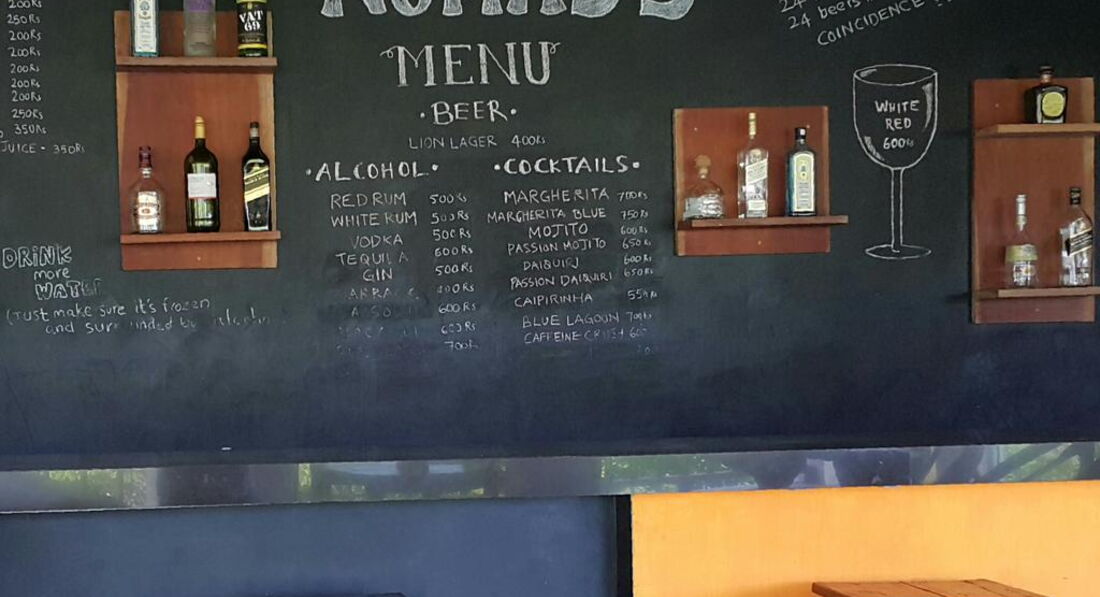 200Rs
250Rs
200Rs
200Rs
200Rs
200Rs
200Rs
250Rs
350Rs
JUICE - 350Rs
VAT
69
NOMADS
MENU
BEER
LION LAGER 400Rs
ALCOHOL
RED RUM 500Rs
WHITE RUM 500Rs
VODKA 500Rs
TEQUILA 600Rs
GIN 500Rs
400Rs
600Rs
600Rs
700R
COCKTAILS
MARGHERITA 700Rs
MARGHERITA BLUE 750Rs
MOJITO 600Rs
PASSION MOJITO 650Rs
DAIQUIRI 600Rs
PASSION DAIQUIRI 650Rs
CAIPIRINHA 550Rs
BLUE LAGOON 700Rs
CAFFEINE CRUSH 600
24
24 beers
COINCIDENCE ??
WHITE
RED
600Rs
DRINK
more
WATER
(Just make sure it's frozen
and surrounded by alcohol